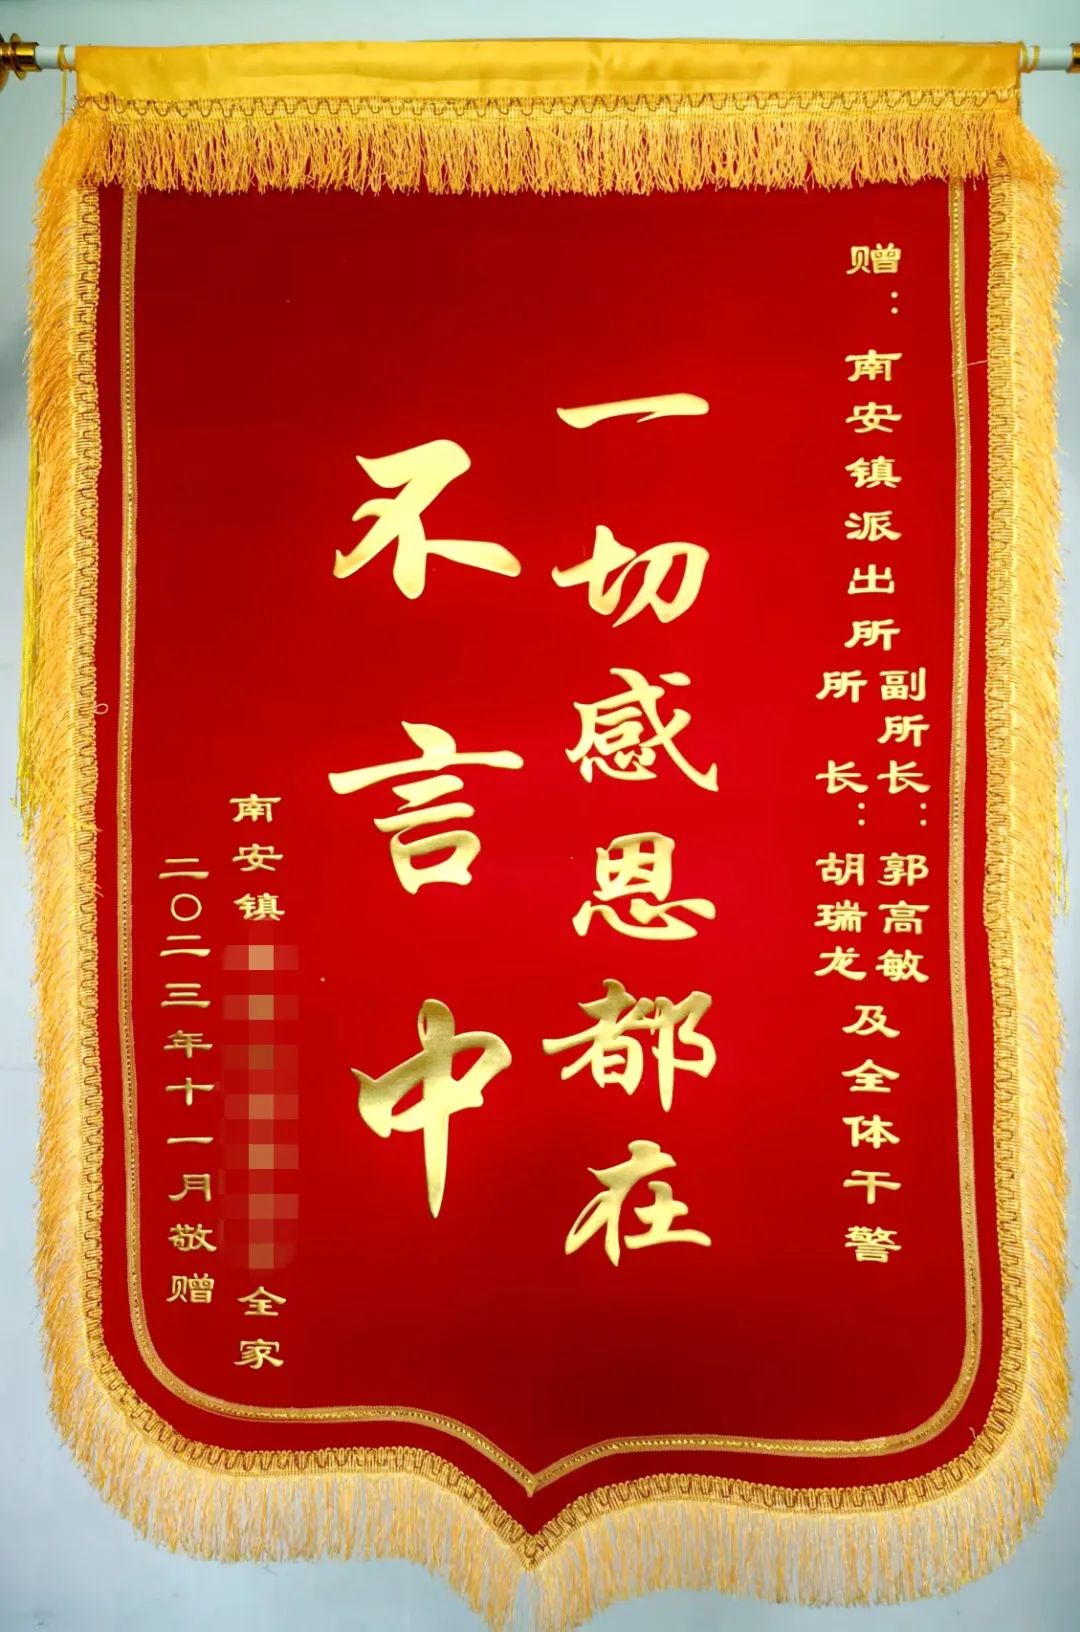 赠：南安镇派出所
副所长：郭高敏
所长：胡瑞龙
及全体干警
一切感恩都在
不言中
南安镇
全家
二〇二三年十一月敬赠